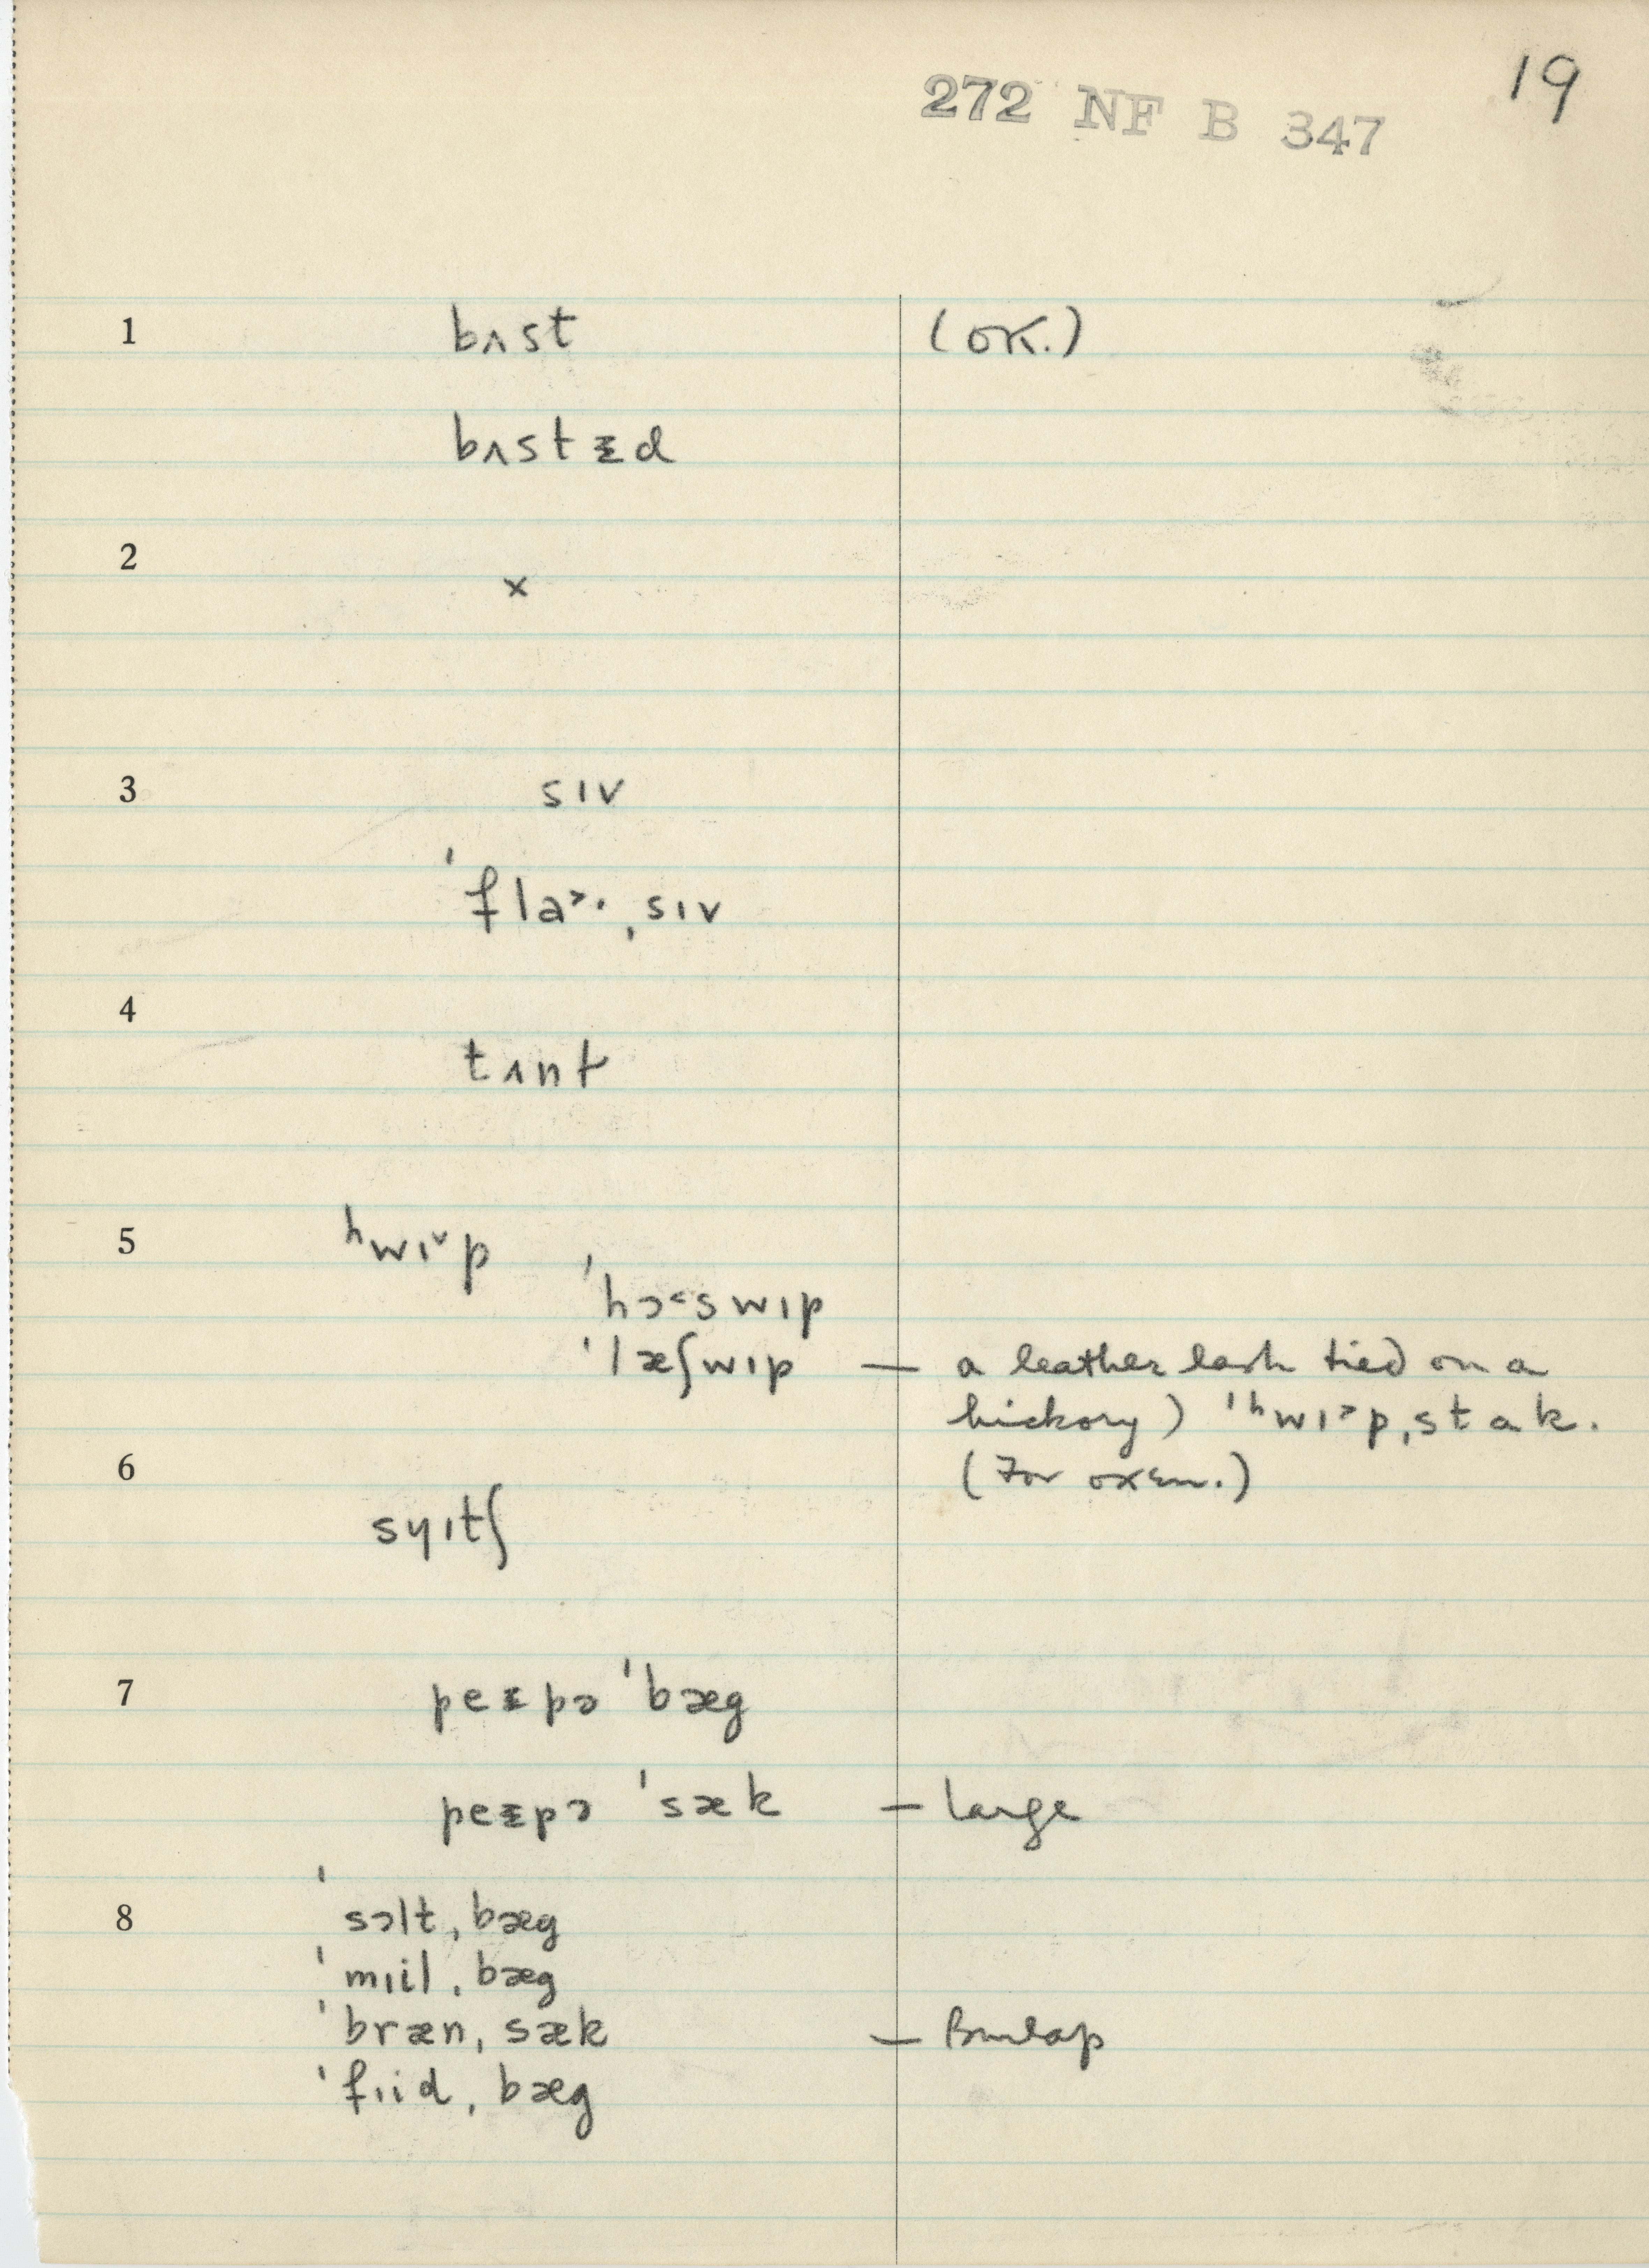 19
272 NF B 347
1 bʌst (OK.)
bʌstᵻd
2 x
3 sɪv
ˈfla˃· ˌsɪv
4 tʌnt
5 ʰwɪ˅p
ˈhɔ˂swɪp
ˈlæʃwɪp — a leather lash tied on a
hickory) ˈʰwɪ˃pˌstɑk.
6 (For oxen.)
sɥɪtʃ
7 peᵻpə ˈbæg
peᵻpə ˈsæk — large
8 ˈsɔltˌbæg
ˈmɪilˌbæg
ˈbrænˌsæk — Burlap
ˈfɪidˌbæg